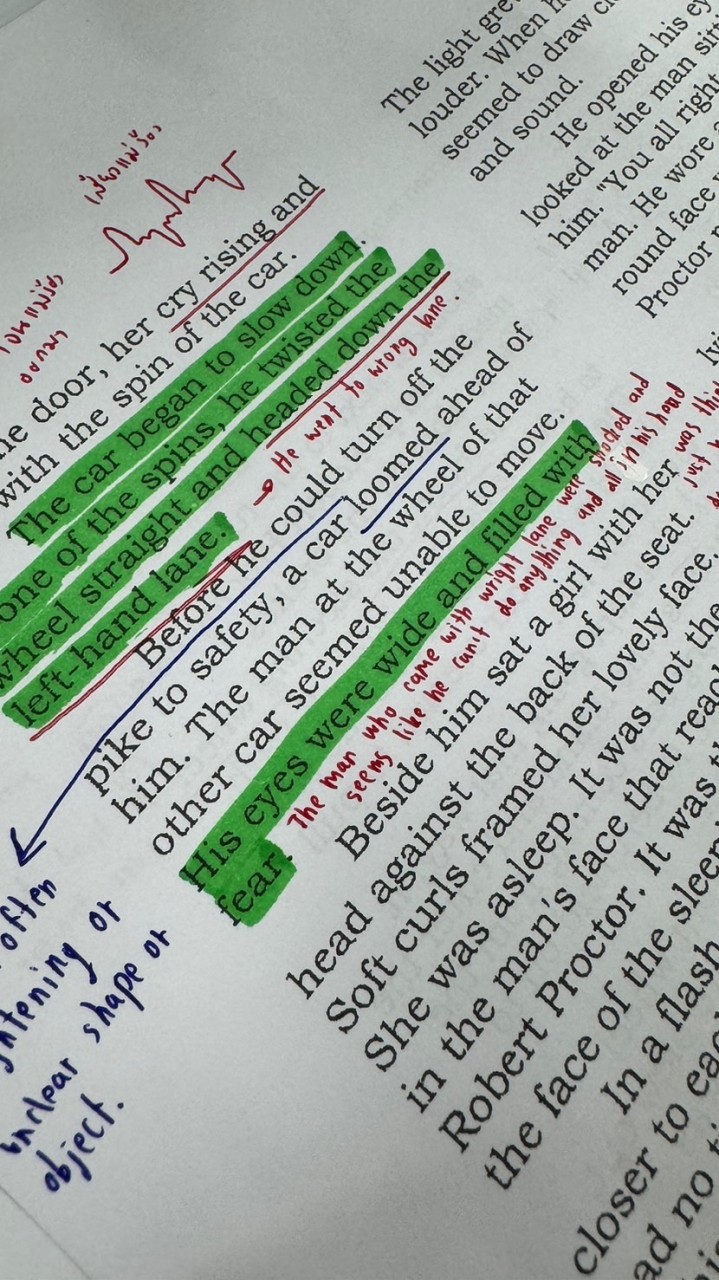 เสียงแม่ร้อง
he door, her cry rising and
with the spin of the car.
The car began to slow down.
one of the spins, he twisted the
wheel straight and headed down the
left-hand lane.
He went to wrong lane.
Before he could turn off the
pike to safety, a car loomed ahead of
him. The man at the wheel of that
other car seemed unable to move.
His eyes were wide and filled with
fear.
The man who came with wright lane were shocked and
seems like he can't do anything and all in his hand
Beside him sat a girl with her
head against the back of the seat.
Soft curls framed her lovely face.
She was asleep. It was not the
in the man's face that
Robert Proctor. It was
the face of the
In a flash
closer to
often
or
unclear shape or
object.
The light
louder. When
seemed to draw
and sound.
He opened his
looked at the man
him. "You all right
man. He wore
round face
Proctor
was
just